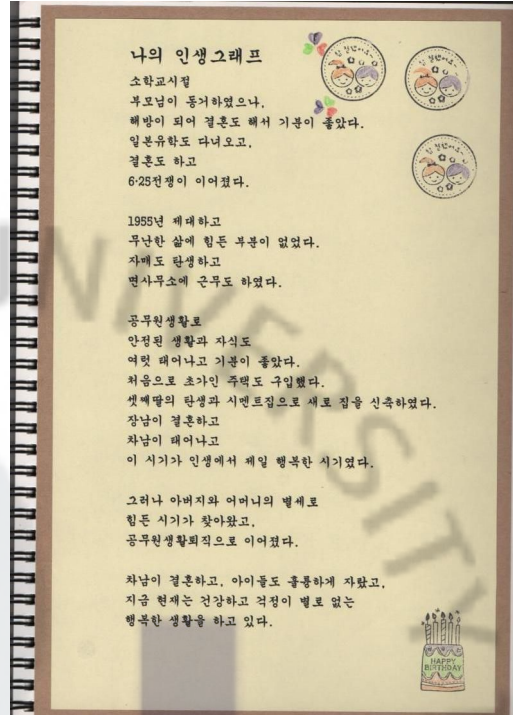 나의 인생그래프
소학교시절
부모님이 동거하였으나,
해방이 되어 결혼도 해서 기분이 좋았다.
일본유학도 다녀오고,
결혼도 하고
6·25전쟁이 이어졌다.
1955년 제대하고
무난한 삶에 힘든 부분이 없었다.
자매도 탄생하고
면사무소에 근무도 하였다.
공무원생활로
안정된 생활과 자식도
여럿 태어나고 기분이 좋았다.
처음으로 초가인 주택도 구입했다.
셋째딸의 탄생과 시멘트집으로 새로 집을 신축하였다.
장남이 결혼하고
차남이 태어나고
이 시기가 인생에서 제일 행복한 시기였다.
그러나 아버지와 어머니의 별세로
힘든 시기가 찾아왔고,
공무원생활퇴직으로 이어졌다.
차남이 결혼하고, 아이들도 훌륭하게 자랐고,
지금 현재는 건강하고 걱정이 별로 없는
행복한 생활을 하고 있다.
HAPPY
BIRTHDAY
UNIVERSITY